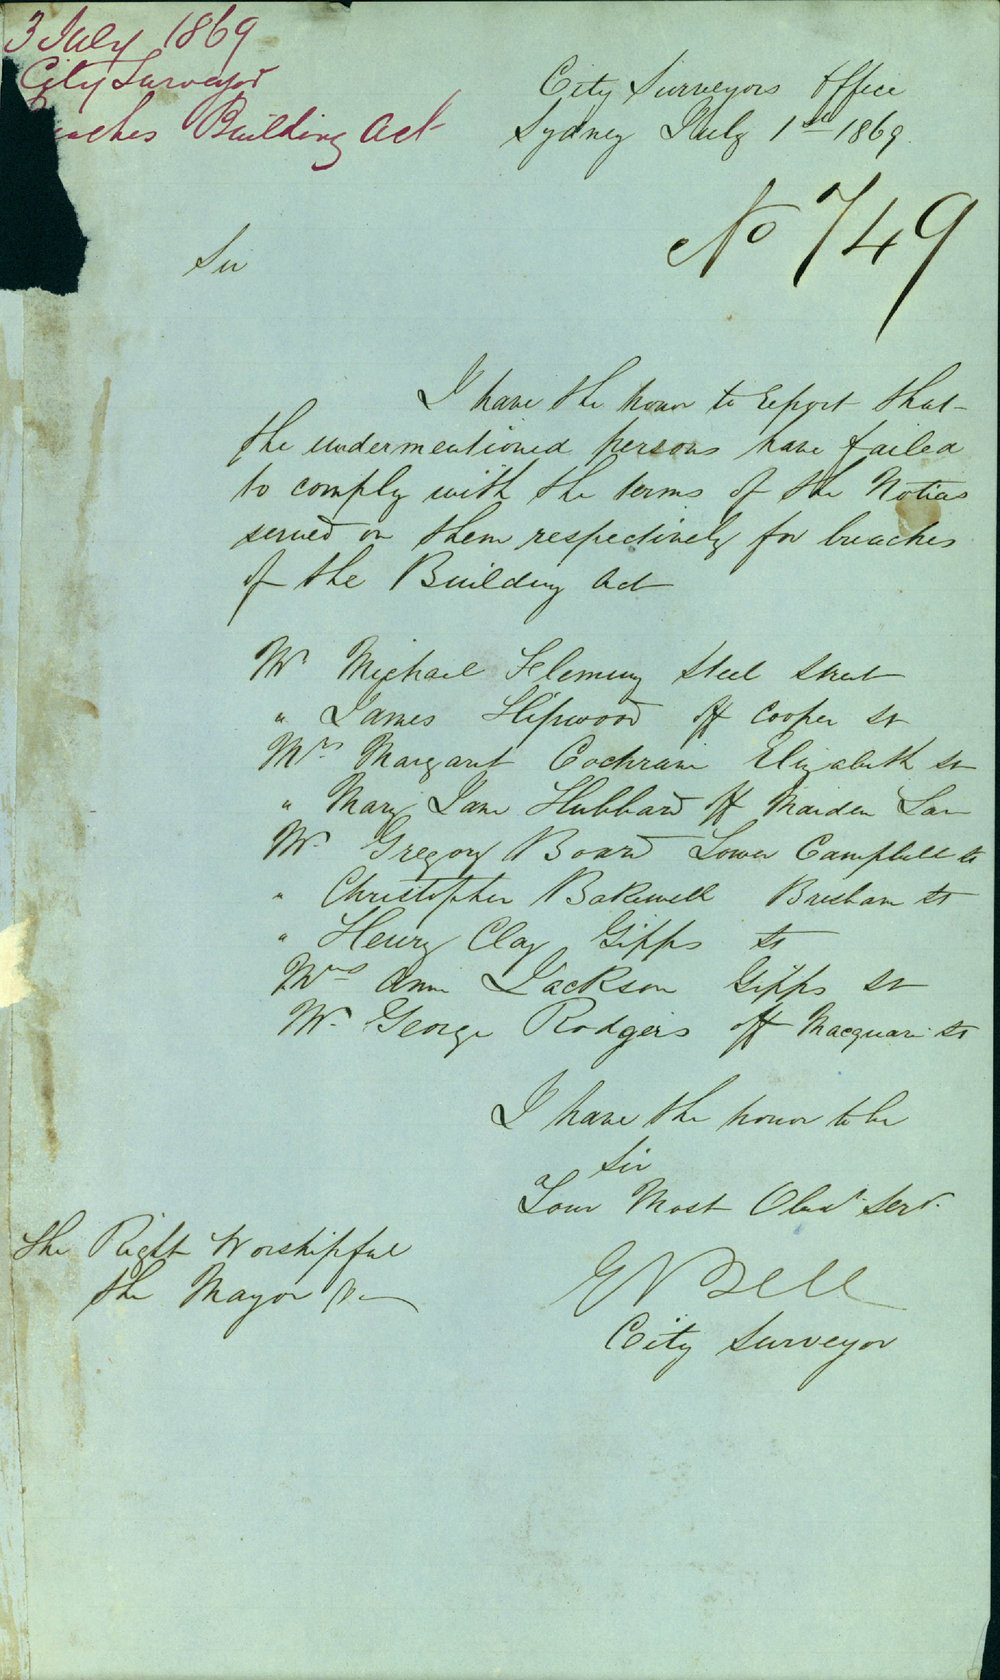 3 July 1869
City Surveyor
Building Act
City Surveyors Office
Sydney July 1st 1869
No 749
Sir
I have the honor to Report that
the undermentioned persons have failed
to comply with the terms of the Notices
served on them respectively for breaches
of the Building Act
Mr Michael Fleming Steel Street
" James Hipwood off Cooper St
Mrs Margaret Cochrane Elizabeth St
" Mary Jane Hubbard off Maiden Lane
Mr Gregory Board Lower Campbell St
" Christopher Bakewell Brisbane St
" Henry Clay Gipps St
Mrs Ann Jackson Gipps St
Mr George Rodgers off Macquarie St
I have the honor to be
Sir
Your Most Obedt Servt
The Right Worshipful
the Mayor &c
E Bell
City Surveyor